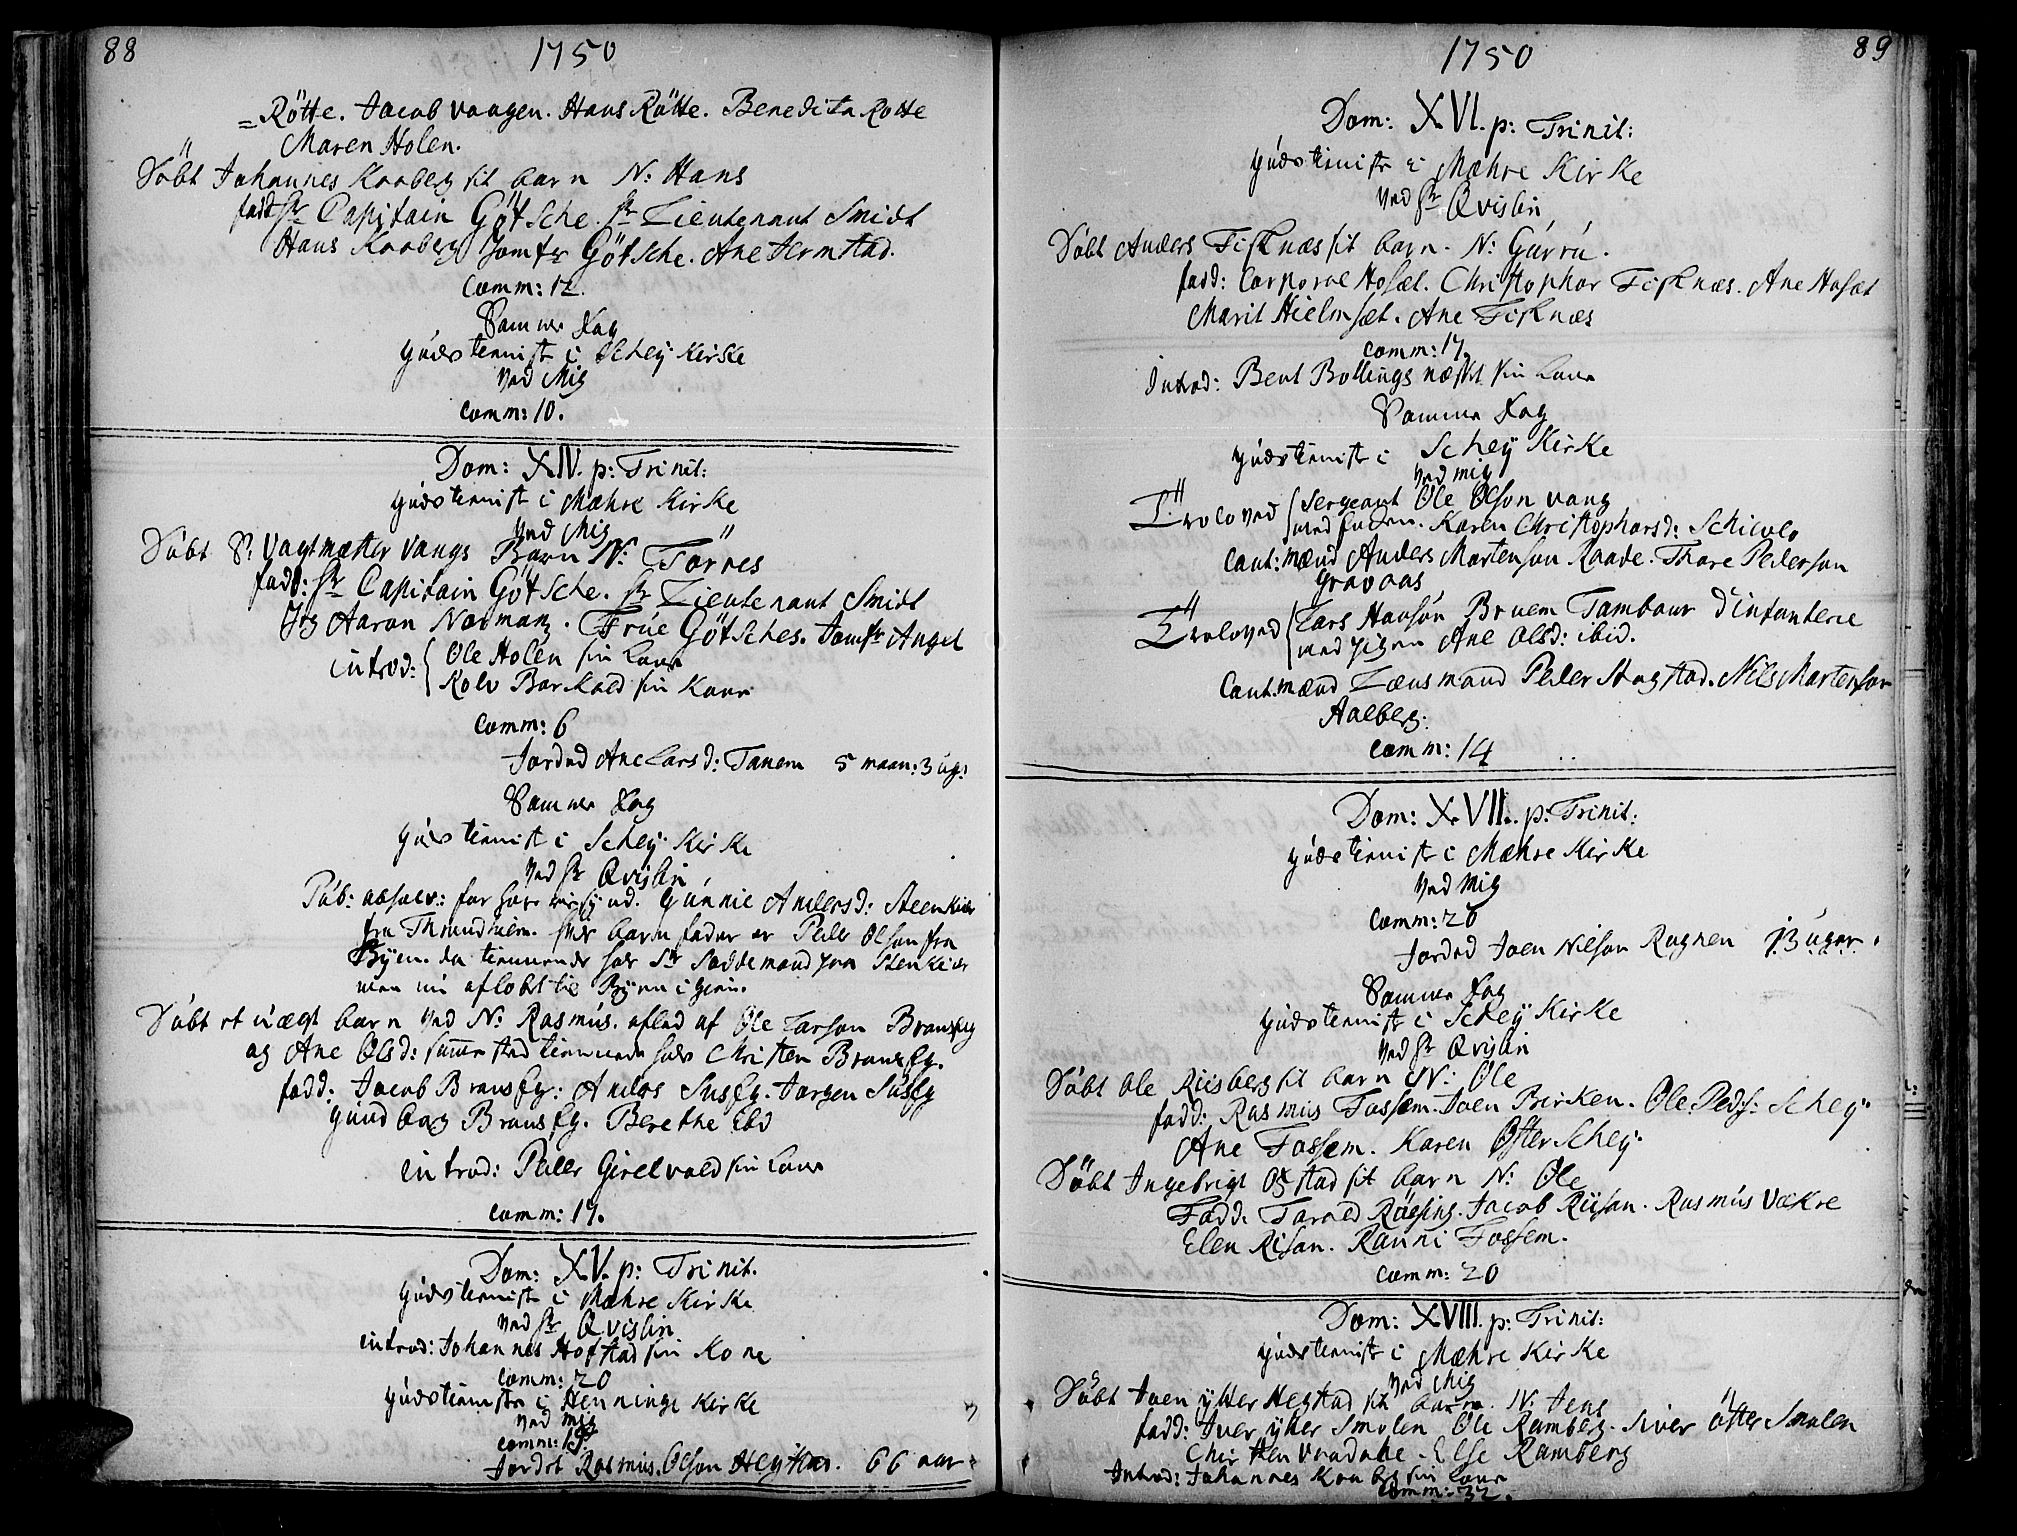 88
1750
= Rötte. Jacob Vaagen. Hans Rötte. Benedicta Rotte
Maren Holen.
Döbt Johannes Kaaberg sit barn N: Hans
fadd: Hr Capitain Götsche. Hr Lieutenant Smidt
Hans Kaaberg Jomfr Götsche. Ane Hermstad.
Comm: 12.
Samme Dag
Gudstienist i Schey Kirke
Ved Mig
Comm: 10.
Dom: XIV. p: Trinit:
Gudstienist i Mæhre Kirke
Ved Mig
Döbt Sr Vagtmæster Vangs Barn N: Torres
fadd: Hr Capitain Götsche. Hr Lieutenant Smidt
Jeg Aaron Norman. Frue Götsches. Jomfr Angel
introd: Ole Holen sin Kone
Rolv Barkald sin Kone
Comm: 6
Jorded Ane Larsd: Tanem 5 maan: 3 ug:
Samme Dag
Gudstienist i Schey Kirke
Ved Hr Qvislin
Pub: absolv: for Gunnie Andersd: Steenkier
fra Throndhiem. barnefader er Peder Olson fra
Byen. da tiennende hos Sr Soddemand paa Stenkier
men nu afløbet til Byen igien.
Döbt et uægt barn ved N: Rasmus. aflad af Ole Larson Bransfg
og Ane Olsd: tiennende hos Christen Bransfg.
fadd: Jacob Bransfg: Anders Susfg. Jørgen Susfg
Gundborg Bransfg. Berethe Ebd
introd: Peder Girelvald sin Kone
Comm: 17.
Dom: XV. p: Trinit.
Gudstienist i Mæhre Kirke
Ved Hr Qvislin
introd: Johannes Hofstad sin Kone
Comm: 20
Gudstienste i Henninge Kirke
Ved mig
Comm: 19.
Jordet Rasmus Olson Hegstad. 66 aar
89
1750
Dom: XVI. p: Trinit:
Gudstienist i Mæhre Kirke
Ved Hr Qvislin
Döbt Anders Fisknæs sit barn. N: Gurru.
fadd: Corporal Hosæt. Christopher Fisknæs. Ane Hosæt
Marit Hielmsæt. Ane Fisknæs
Comm: 17.
Introd: Bent Bollingsnæsset sin Kone
Samme Dag
Gudstienist i Schey Kirke
Ved mig
Troloved Sergeant Ole Olson Vang
med Karen Christophersd: Schievle
Caut: mænd Anders Mortenson Raade. Thare Pederson
Gravaas
Troloved Lars Hanson Bruem Tambour d'infanterie
med pigen Ane Olsd: ibid.
Caut. mænd Lænsmand Peder Stagstad. Nils Mortenson
Aalberg.
Comm: 14
Dom: XVII. p: Trinit:
Gudstienist i Mæhre Kirke
Ved Mig
Comm: 20
Jorded Joen Nilson Rognen 13 uger.
Samme Dag
Gudstienist i Schey Kirke
Ved Hr Qvislin
Döbt Ole Riisberg sit barn N: Ole
fadd: Rasmus Fossem. Joen Birken. Ole Peds: Schey.
Ane Fossem. Karen Øster Schey.
Döbt Ingebrigt Ogstad sit barn N: Ole
Fadd. Tarald Rögsing. Jacob Riisan. Rasmus Vækre
Elen Risan. Ranni Fossem.
Comm: 20
Dom: XVIII. p: Trinit:
Gudstienist i Mæhre Kirke
Ved Mig
Döbt Joen ytter Hegstad sit barn. N: Jens
fadd: Iver ytter Smolen Ole Ramberg. Siver öfter Smolen
Christen Vaadahl. Else Ramberg
Introd: Johannes Kaaberg sin Kone
Comm: 32.